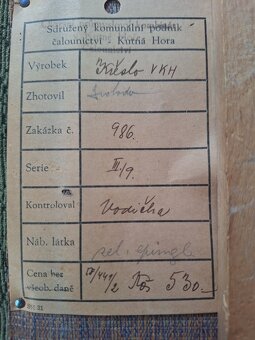 Sdružený komunální podnik
čalounictví - Kutná Hora
Výrobek Křeslo VKH
Zhotovil Svoboda
Zakázka č. 986.
Serie III/9.
Kontroloval Vodička
Náb. látka zel. epingl.
Cena bez
všeob. daně Kčs 530.-